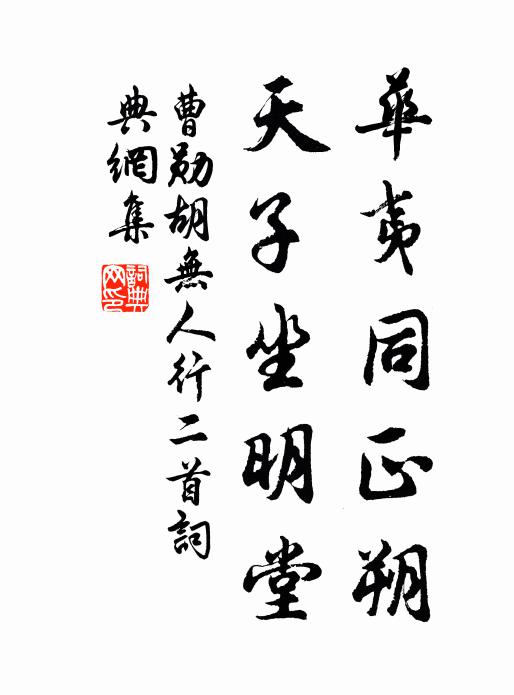 華夷同正朔
天子坐明堂
曹勛胡無人行二首詞
典網集
詞典網印